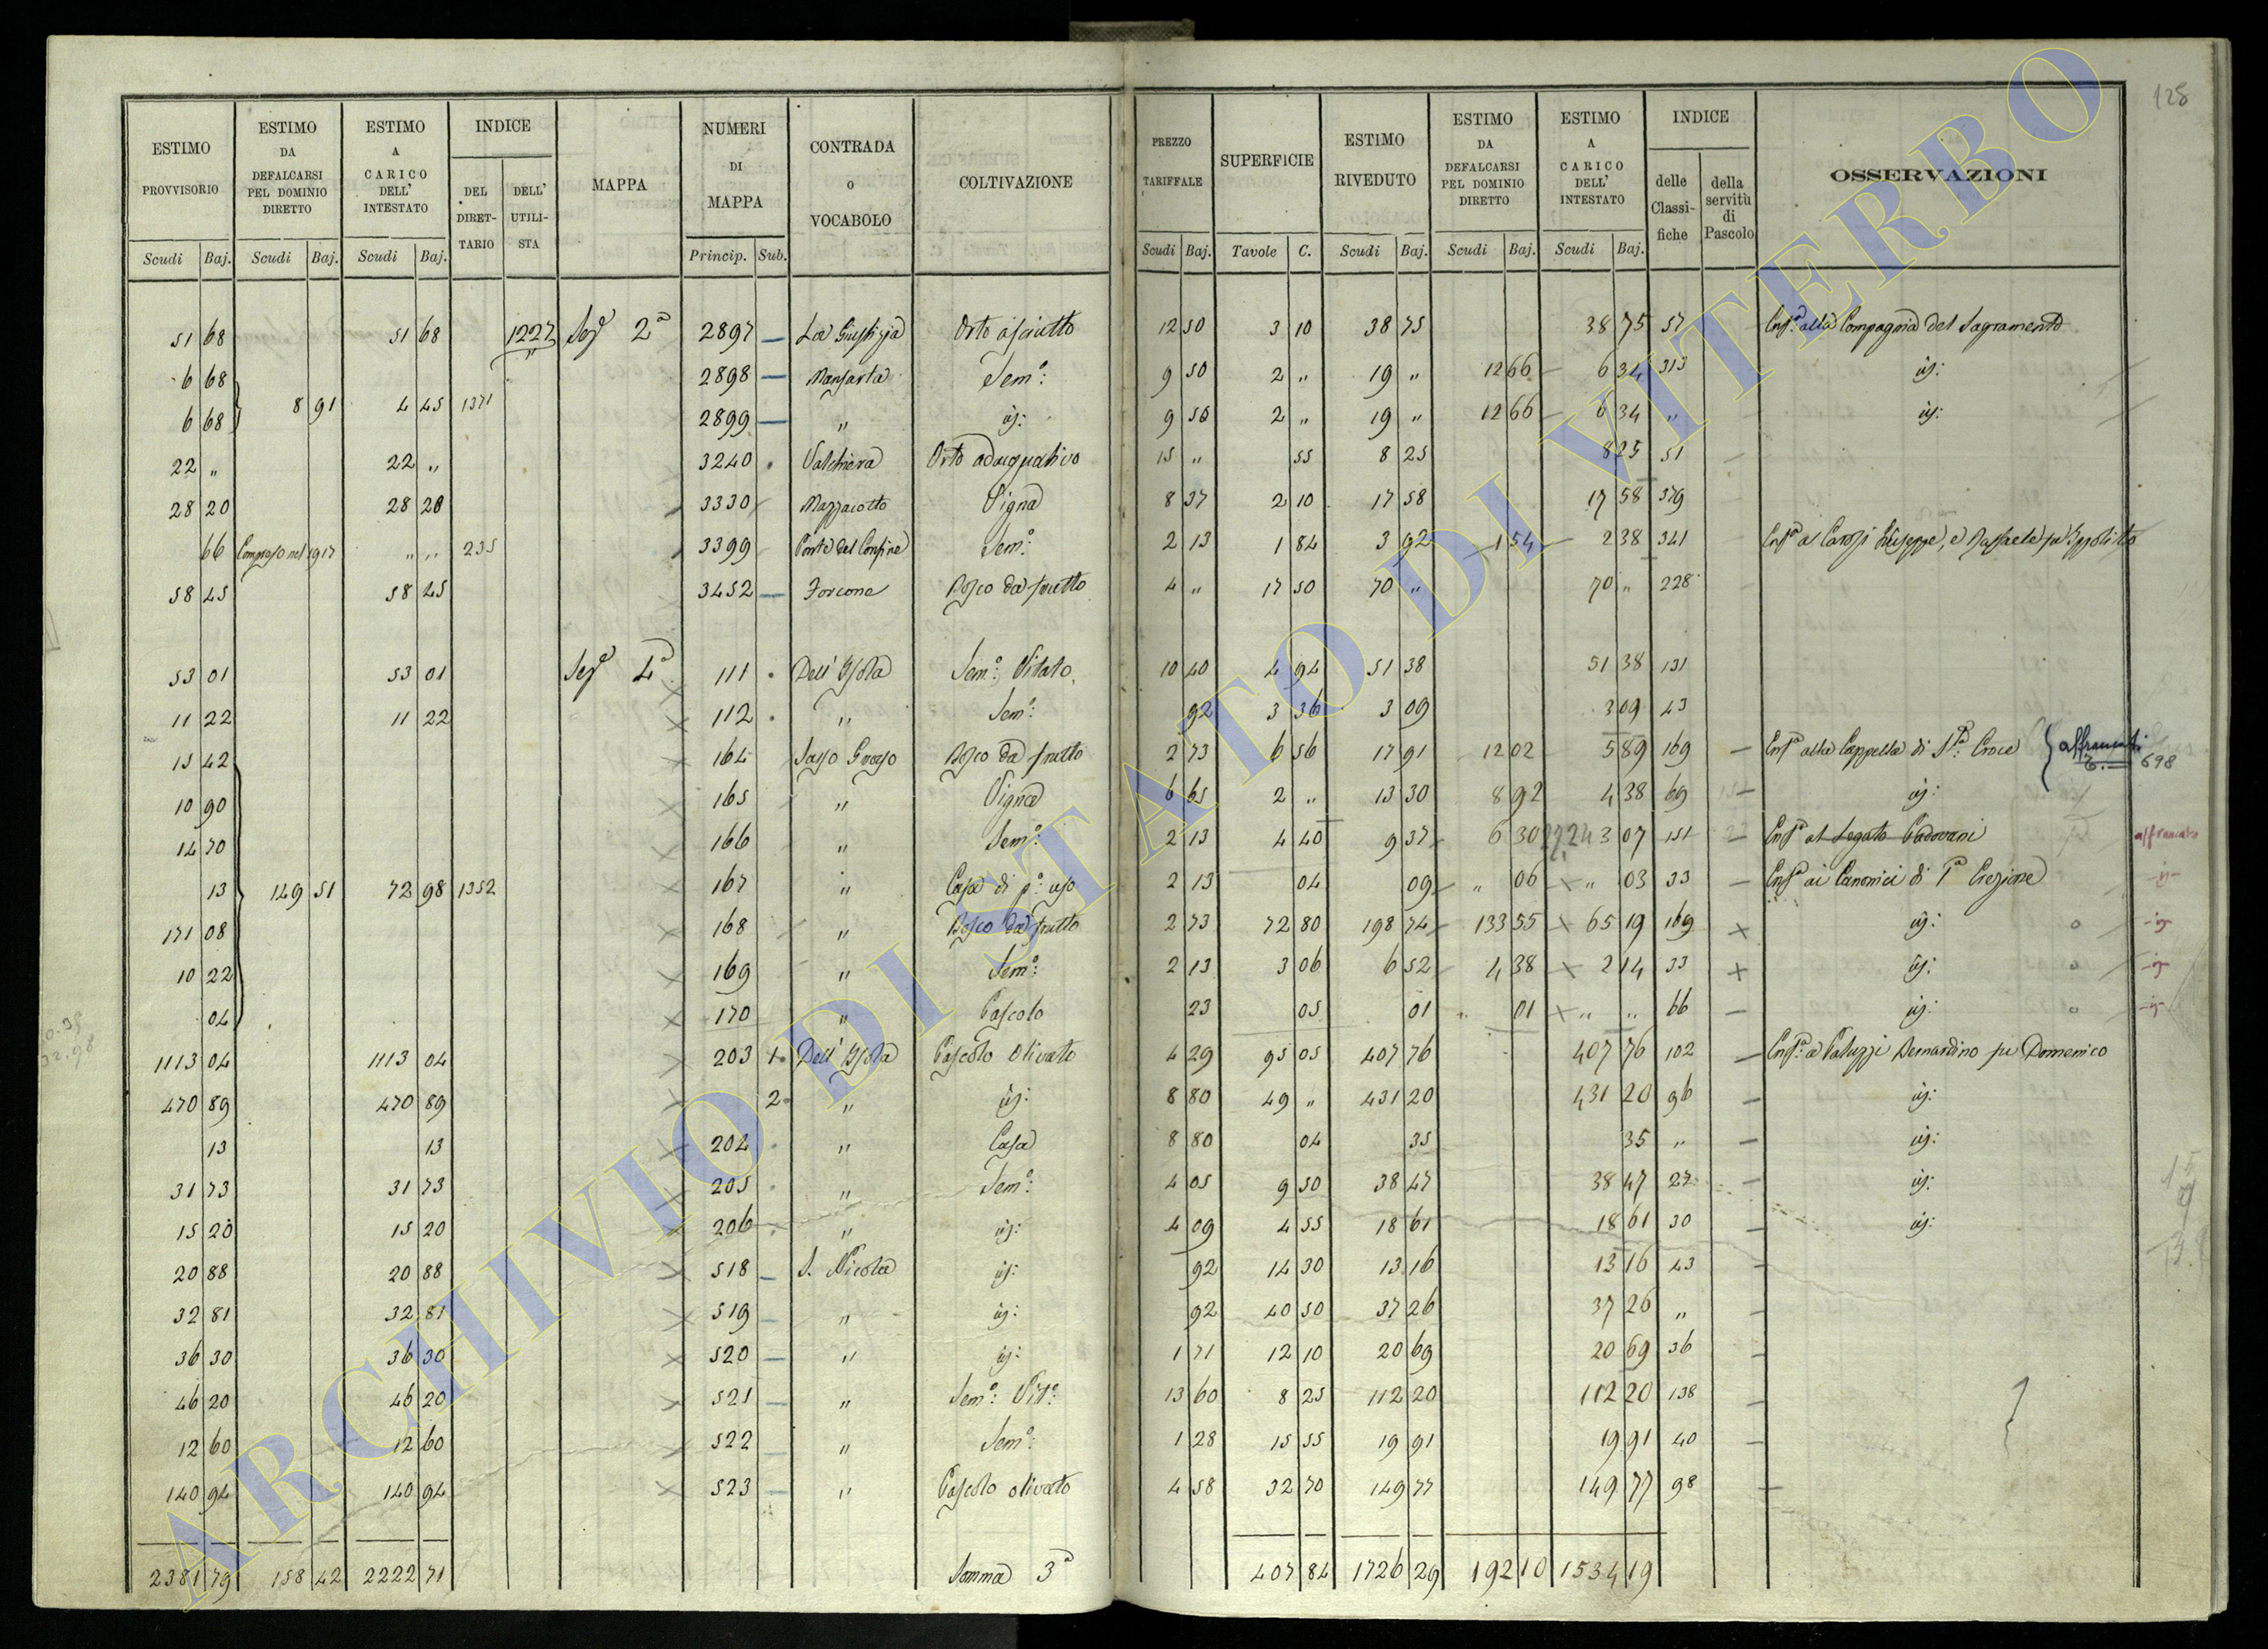 128
ESTIMO PROVVISORIO | ESTIMO DA DEFALCARSI PEL DOMINIO DIRETTO | ESTIMO A CARICO DELL' INTESTATO | INDICE | MAPPA | NUMERI DI MAPPA | CONTRADA O VOCABOLO | COLTIVAZIONE | PREZZO TARIFFALE | SUPERFICIE | ESTIMO RIVEDUTO | ESTIMO DA DEFALCARSI PEL DOMINIO DIRETTO | ESTIMO A CARICO DELL' INTESTATO | INDICE | OSSERVAZIONI
DEL DIRETTARIO | DELL' UTILISTA | delle Classifiche | della servitù di Pascolo
Scudi | Baj. | Scudi | Baj. | Scudi | Baj. | Princip. | Sub. | Scudi | Baj. | Tavole | C. | Scudi | Baj. | Scudi | Baj. | Scudi | Baj.
51 68 | 51 68 | 1227 | Sez.e 2a | 2897 | La Giustizia | Orto asciutto | 12 50 | 3 10 | 38 75 | 38 75 | 57 | Enf.a alla Compagnia del Sagramento
6 68 | 2898 | Sem.o: | 9 50 | 2 " | 19 " | 12 66 | 6 34 | 313 | id:
8 91 | 4 45 | 1371
6 68 | 2899 | " | id: | 9 50 | 2 " | 19 " | 12 66 | 6 34 | " | id:
22 " | 22 " | 3240 | Valchiera | Orto adacquativo | 15 " | 55 | 8 25 | 8 25 | 51
28 20 | 28 20 | 3330 | Mazzacotto | Vigna | 8 37 | 2 10 | 17 58 | 17 58 | 379
66 | Compreso nel 1917 | " " | 235 | 3399 | Ponte del Confine | Sem.o: | 2 13 | 1 84 | 3 92 | 1 54 | 2 38 | 341 | Enf.a a Carosi Giuseppe, e Raffaele fu Ippolito
58 45 | 58 45 | 3452 | Forcone | Bosco da frutto | 4 " | 17 50 | 70 " | 70 " | 228
53 01 | 53 01 | Sez.e 4a | 111 | Dell' Isola | Sem.o: Vitato | 10 40 | 4 94 | 51 38 | 51 38 | 131
11 22 | 11 22 | 112 | " | Sem.o: | 92 | 3 36 | 3 09 | 3 09 | 43
15 42 | 164 | Sasso Grosso | Bosco da frutto | 2 73 | 6 56 | 17 91 | 12 02 | 5 89 | 169 | Enf.a alla Cappella di S.ta Croce | affrancati | 698
10 90 | 165 | " | Vigna | 6 65 | 2 " | 13 30 | 8 92 | 4 38 | 69 | id:
14 70 | 166 | " | Sem.o: | 2 13 | 4 40 | 9 37 | 6 30 | 3 07 | 151 | Enf.a al Legato Padovani | affrancato
13 | 149 51 | 72 98 | 1352 | 167 | " | Casa di p.o uso | 2 13 | 04 | 09 | " 06 | " 03 | 33 | Enf.a ai Canonici di 1a Erezione | id
171 08 | 168 | " | Bosco da frutto | 2 73 | 72 80 | 198 74 | 133 55 | 65 19 | 169 | id: | id
10 22 | 169 | " | Sem.o: | 2 13 | 3 06 | 6 52 | 4 38 | 2 14 | 33 | id: | id
04 | 170 | " | Pascolo | 23 | 05 | 01 | " 01 | " " | 66 | id: | id
1113 04 | 1113 04 | 203 1 | Dell' Isola | Pascolo Olivato | 4 29 | 95 05 | 407 76 | 407 76 | 102 | Enf.a a Paluzzi Bernardino fu Domenico
470 89 | 470 89 | 2 | " | id: | 8 80 | 49 " | 431 20 | 431 20 | 96 | id:
13 | 13 | 204 | " | Casa | 8 80 | 04 | 35 | 35 | " | id:
31 73 | 31 73 | 205 | " | Sem.o: | 4 05 | 9 50 | 38 47 | 38 47 | 27 | id:
15 20 | 15 20 | 206 | " | id: | 4 09 | 4 55 | 18 61 | 18 61 | 30 | id:
20 88 | 20 88 | 518 | S. Nicola | id: | 92 | 14 30 | 13 16 | 13 16 | 43
32 81 | 32 81 | 519 | " | id: | 92 | 40 50 | 37 26 | 37 26 | "
36 30 | 36 30 | 520 | " | id: | 1 71 | 12 10 | 20 69 | 20 69 | 36
46 20 | 46 20 | 521 | " | Sem.o: Vit.o: | 13 60 | 8 25 | 112 20 | 112 20 | 138
12 60 | 12 60 | 522 | " | Sem.o: | 1 28 | 15 55 | 19 91 | 19 91 | 40
140 94 | 140 94 | 523 | " | Pascolo olivato | 4 58 | 32 70 | 149 77 | 149 77 | 98
2381 79 | 158 42 | 2222 71 | Somma 3a | 407 84 | 1726 29 | 192 10 | 1534 19
ARCHIVIO DI STATO DI VITERBO